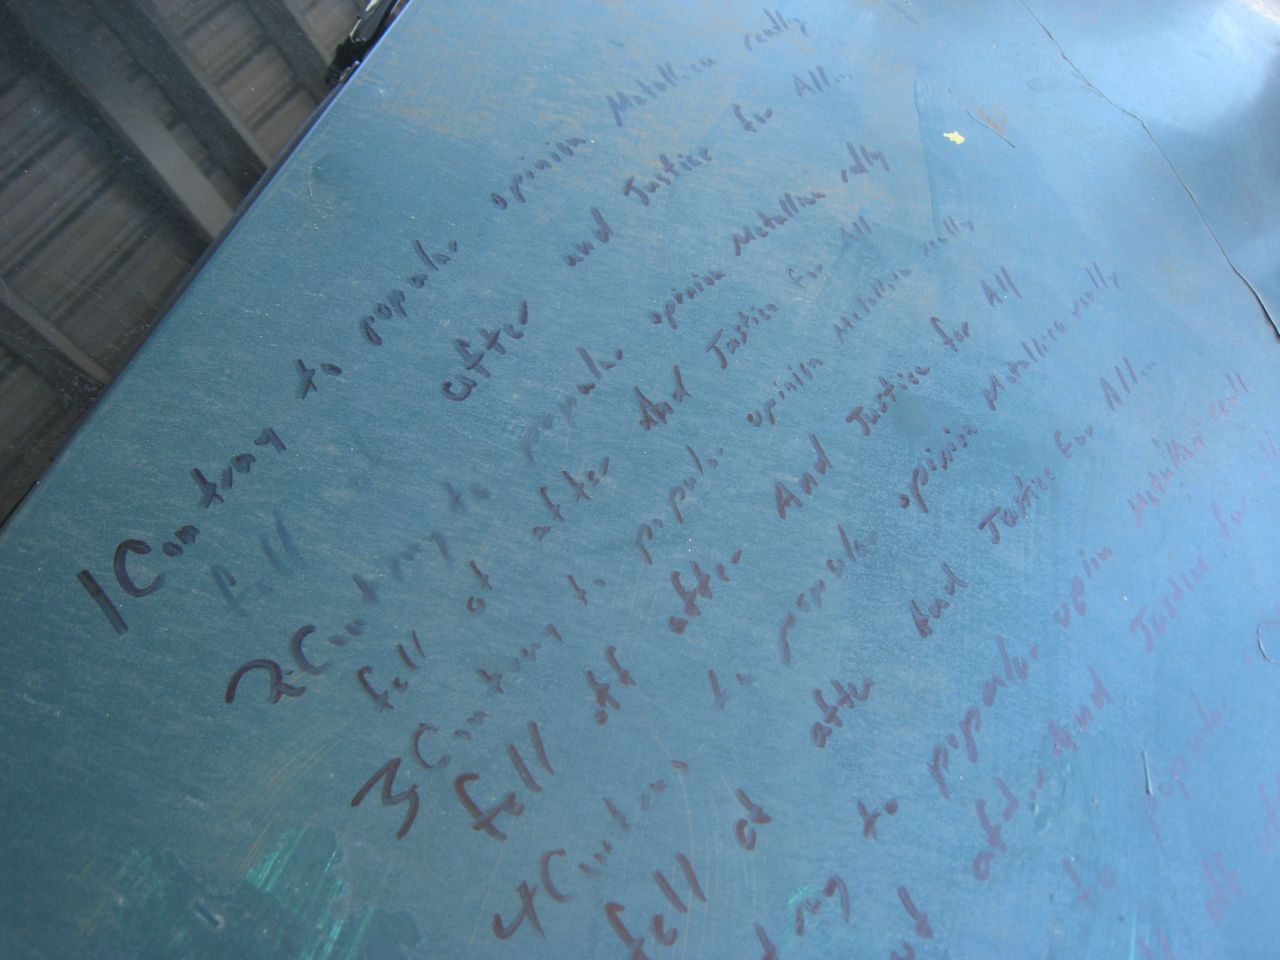 1 Contray to popular opinion Metallica really
fell after and Justice for All...
2 Contray to popular opinion Metallica really
fell of after And Justice for All
3 Contray to popular opinion Metallica really
fell off after And Justice for All
4 Contray to popular opinion Metallica really
fell of after And Justice for All...
to popular opin Metallica reall
after And Justice for
to popular
off